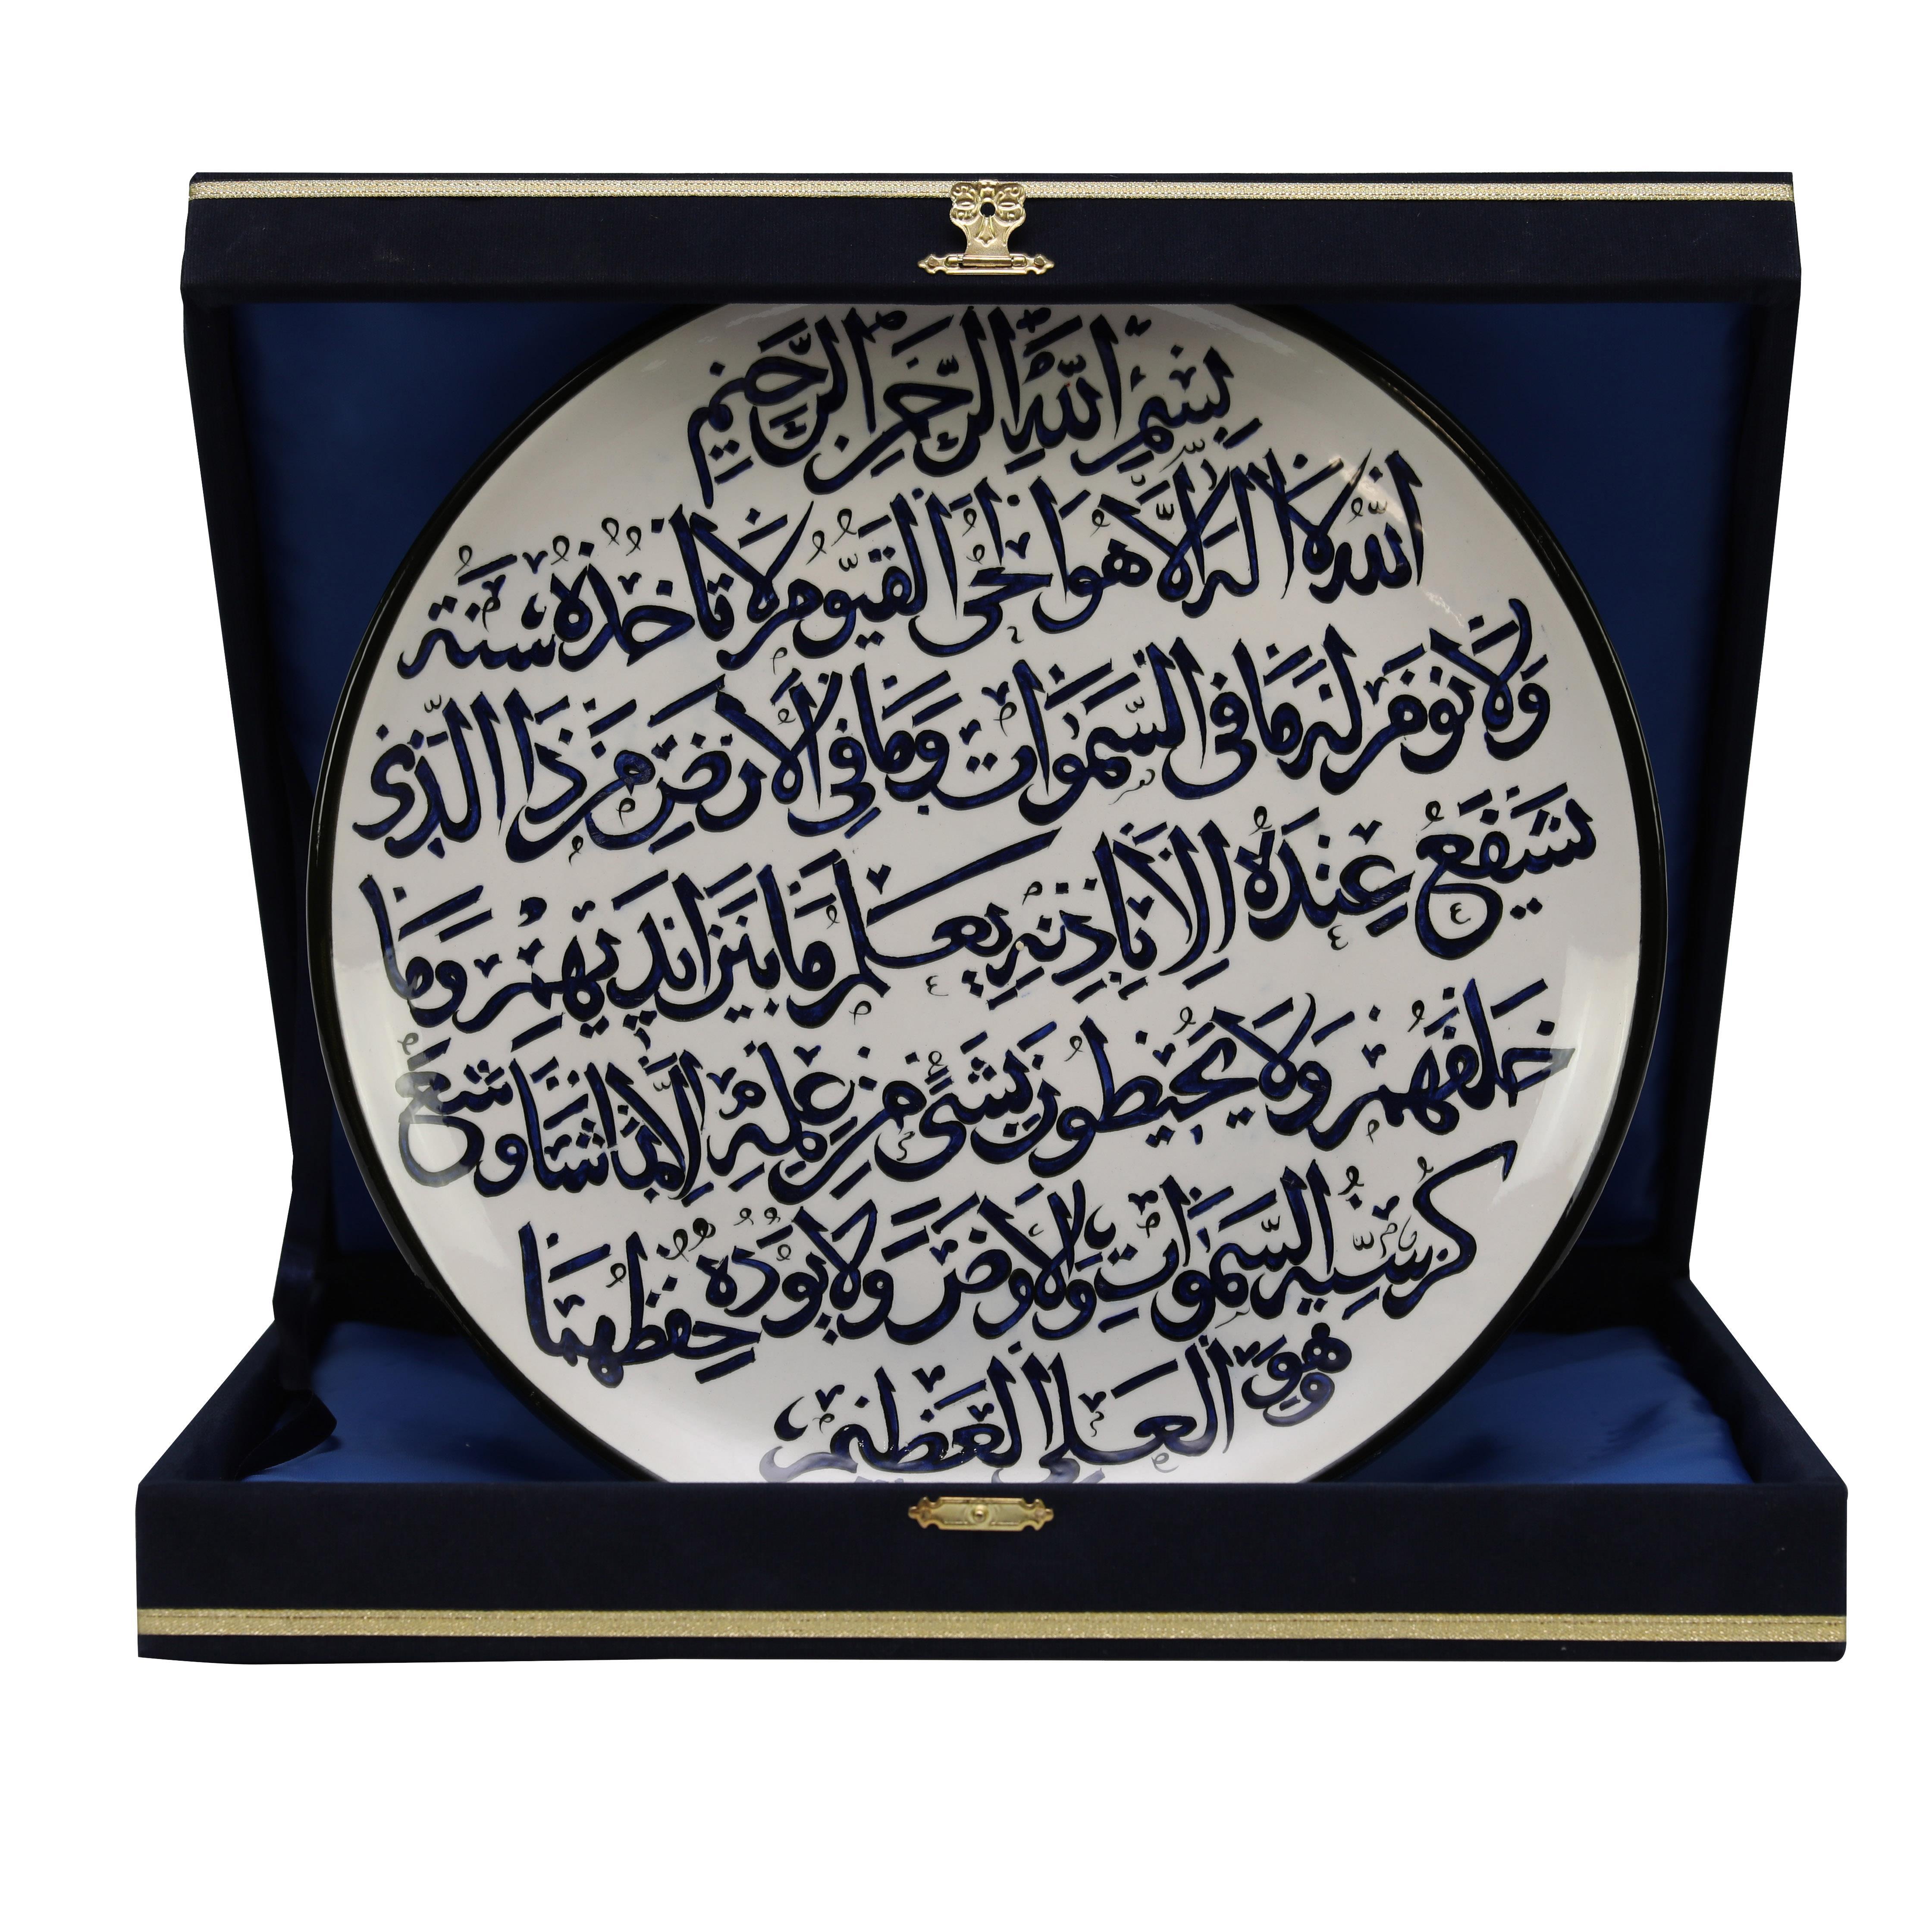 بِسْمِ اللّٰهِ الرَّحْمٰنِ الرَّحِيْمِ
اَللّٰهُ لَا اِلٰهَ اِلَّا هُوَ الْحَیُّ الْقَيُّومُ لَا تَاْخُذُهُ سِنَةٌ
وَلَا نَوْمٌ لَهُ مَا فِی السَّمٰوَاتِ وَمَا فِی الْاَرْضِ مَنْ ذَا الَّذِی
يَشْفَعُ عِنْدَهُ اِلَّا بِاِذْنِهِ يَعْلَمُ مَا بَيْنَ اَيْدِيهِمْ وَمَا
خَلْفَهُمْ وَلَا يُحِيْطُونَ بِشَیْءٍ مِنْ عِلْمِهِ اِلَّا بِمَا شَاءَ وَسِعَ
كُرْسِيُّهُ السَّمٰوَاتِ وَالْاَرْضَ وَلَا يَؤُدُهُ حِفْظُهُمَا
وَهُوَ الْعَلِیُّ الْعَظِيْمُ